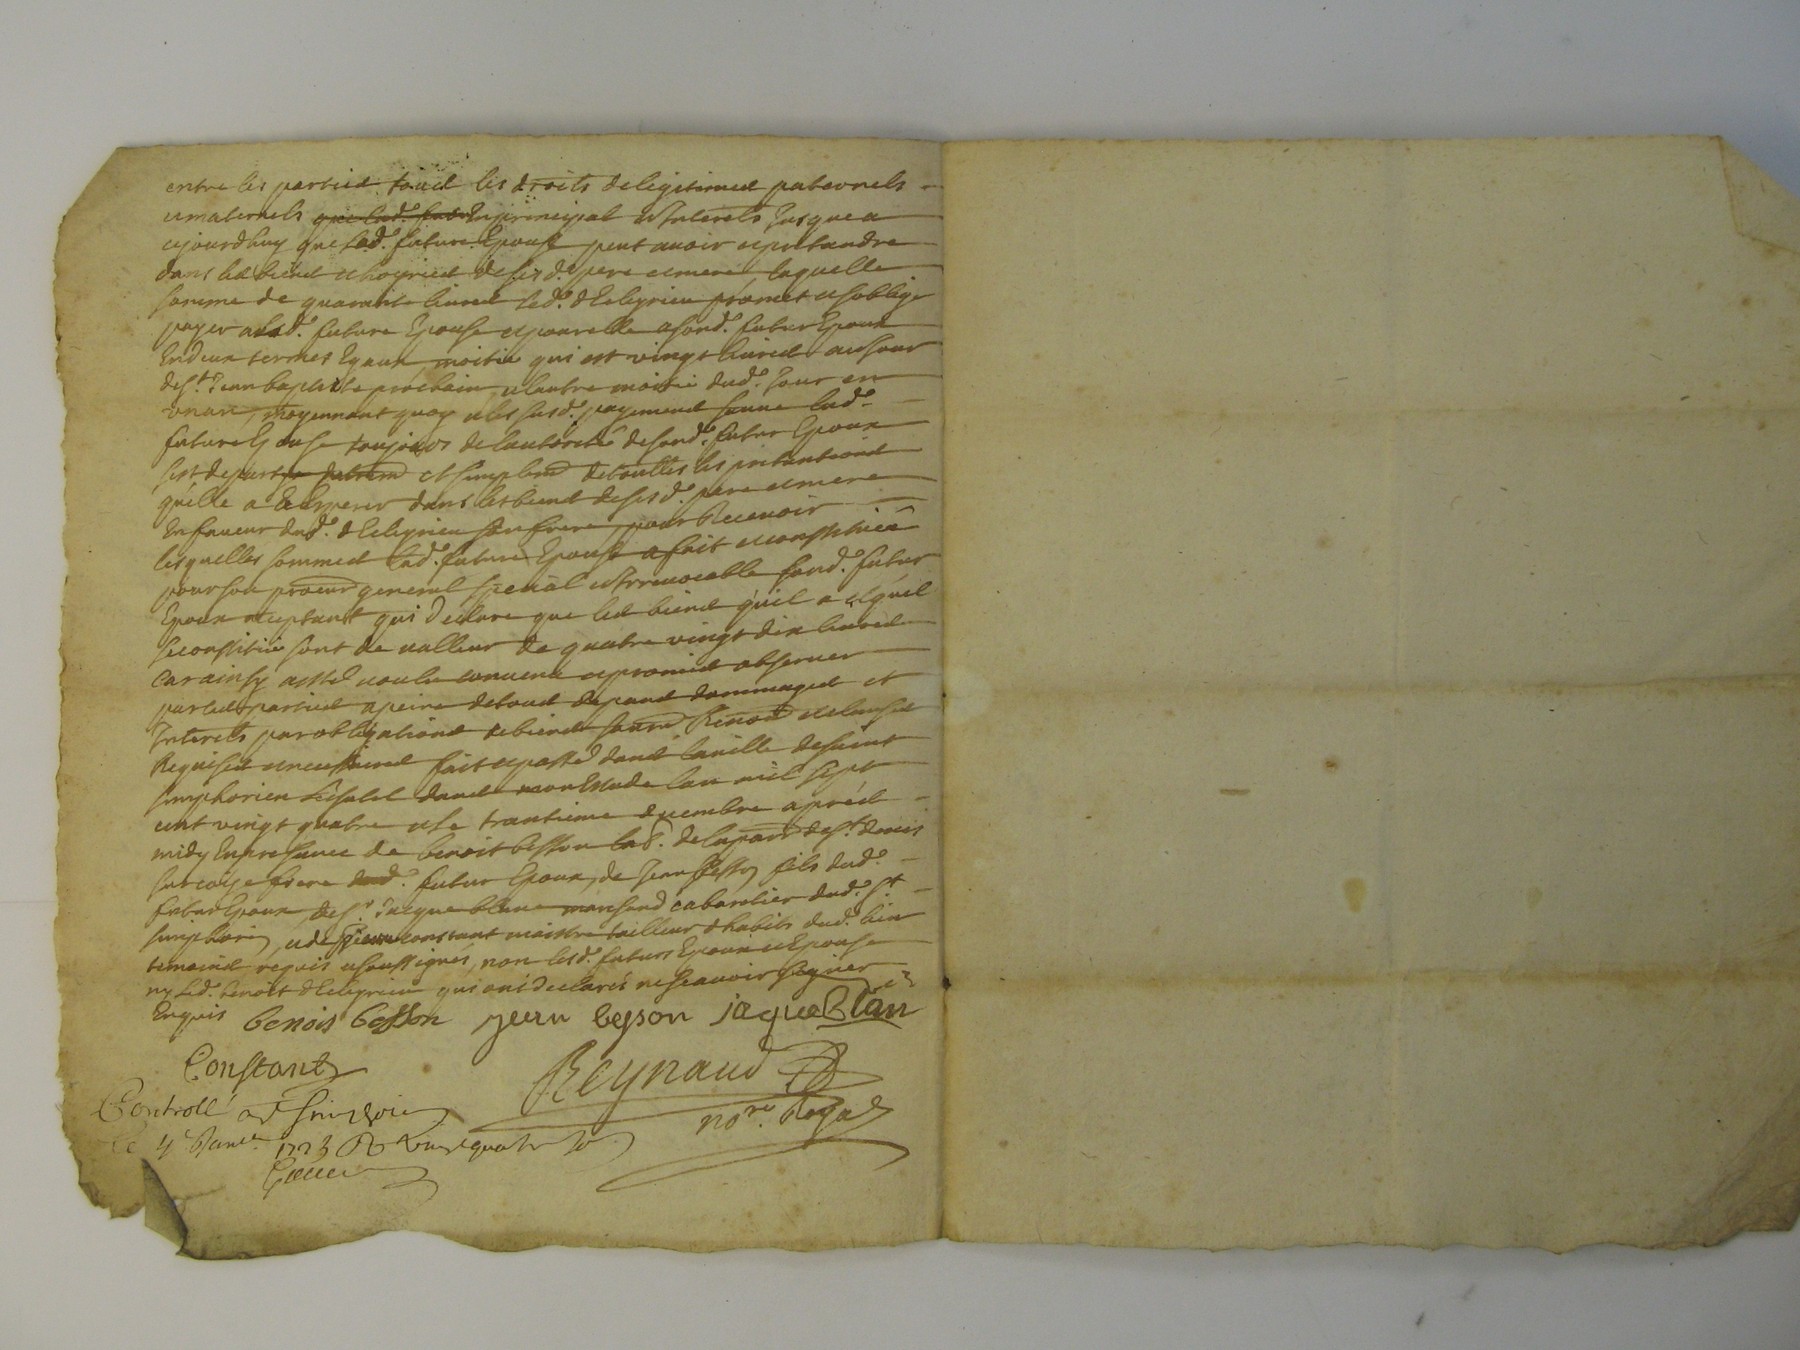 entre les parties tous les droits de legitimes paternels
et maternels que lad.^e fut En principal et Interests Jusques a
ajourdhuy que lad.^e future Epouse peut avoir et pretandre
dans les biens et hoyries de sesd.^s pere et mere, laquelle
somme de quarante livres led.^t promet et soblige
payer a lad.^e future Epouse et pour elle a sond.^t futur Epoux
En deux termes Egaux moitié qui est vingt livres au Jour
de S.^t Jean baptiste prochain, et lautre moitié dud.^t Jour en
un an, moyennant quoy et les susd.^s payements lad.^e
future Epouse toujours de lautorité de sond.^t futur Epoux
sest departie et simplem^t de touttes les pretantions
quelle a et Esperer dans les biens de sesd.^s pere et mere
En faveur dud.^t son frere, pour Recevoir
lesquelles sommes lad.^e future Epouse a fait et constitué
pour son procur general special et Irrevocable sond.^t futur
Epoux acceptant qui declare que les biens quil a et quil
se constitue sont de valleur de quatre vingt dix livres
Car ainsy a esté voulu convenu et promis observer
par les parties a peine de tous depans dommages et
Interests par obligations de biens soum Renon et clauses
Requises et necessaires fait et passé dans la ville de saint
simphorien dans mon Estude lan mil sept
cent vingt quatre et le trantieme decembre apres
midy En presance de benoit besson lab.^r de la par de S.^t denis
sur coise frere dud.^t futur Epoux, de Jean besson fils dud.^t
futur Epoux de S.^r Jacque blanc marchand cabaretier dud.^t S.^t
simphorien, et de constant maistre tailleur dhabits dud.^t lieu
temoins requis et soussignés, non lesd.^s futurs Epoux et Epouse
ny led.^t benoit qui ont declarés ne scavoir signer
Enquis benois besson jean besson jaque Blan
Constant
Reynaud
Controllé a S.^t
no^re. Royal
Le 4 Janv^er